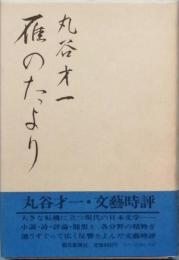 丸谷才一
雁のたより
丸谷才一・文藝時評
大きな転機に立つ現代の日本文学――
小説・詩・評論・随想と、各分野の精粋を
選りすぐって広く反響をよんだ文藝時評
朝日新聞社